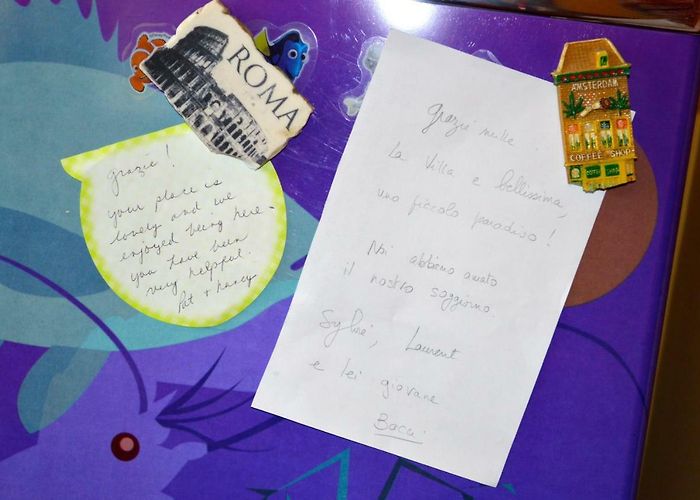 ROMA
grazie!
your place is
lovely and we
enjoyed being here -
you have been
very helpful.
Pat + Nancy
grazie mille
La Villa e bellissima,
uno piccolo paradiso!
Noi abbiamo amato
il nostro soggiorno.
Laurent
e lei giovane
Baci
AMSTERDAM
COFFEE SHOP